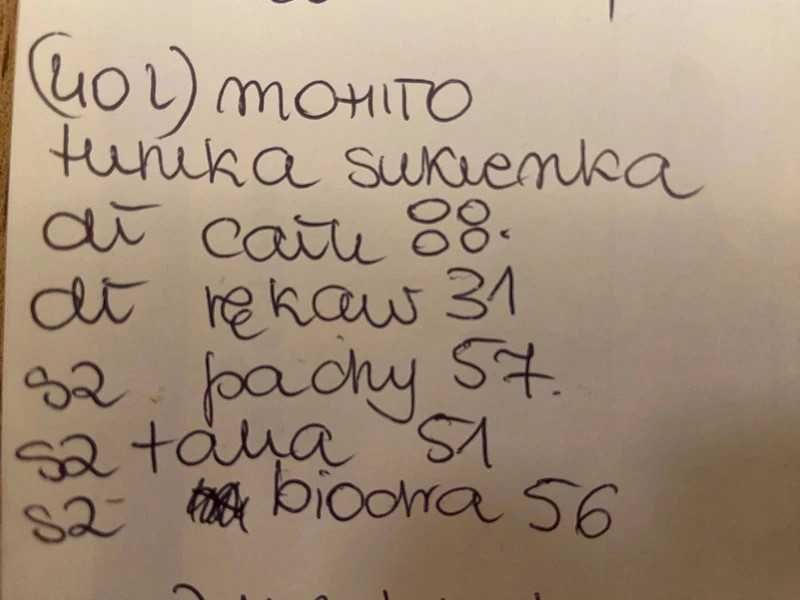 (40 L) MOHITO
tunika sukienka
dł całk 88.
dł rękaw 31
sz pachy 57.
sz talia 51
sz biodra 56